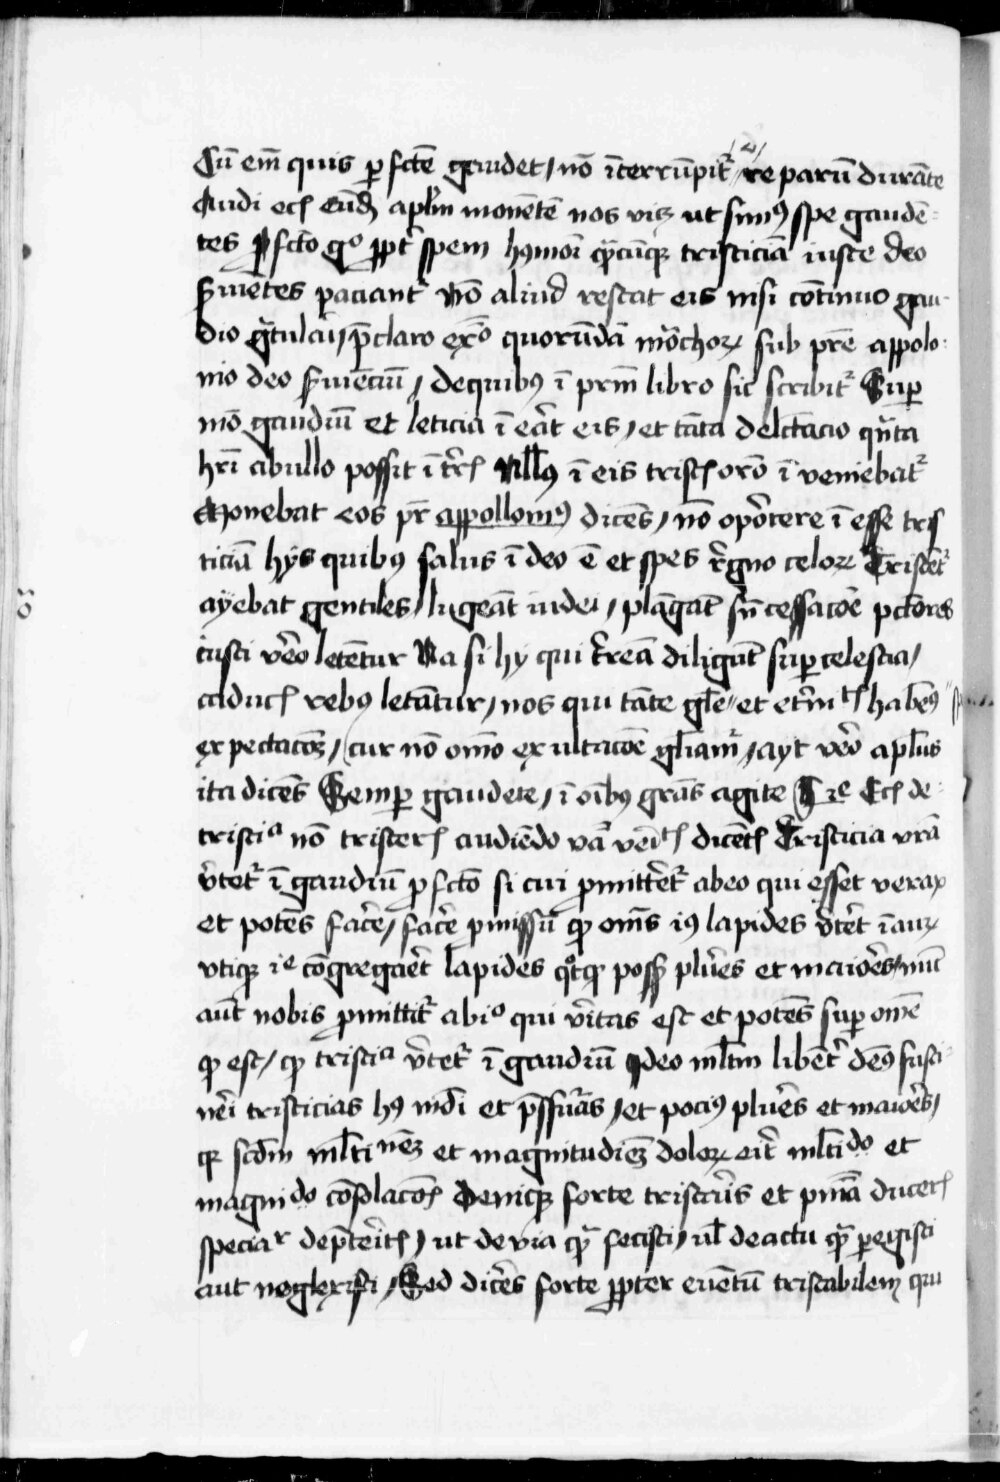 Cū em̄ quis p̲ fctē gaudet / nō īterrūpit᷑ re parū durāte
Audi ecꝭ eūdꝫ aplm̄ monētē nos vꝫ ut simꝰ spe gaudē-
tes p̲fcto gͦ ppt᷑ spem hꝰmoī qͣcūqꝫ tristiciā iuste deo
s̄uiētes paciant᷑ Nō aliud restat eis nisi cōtinuo gau-
dio gͣtulāi p̄claro exͦ quorūdā mōchoꝝ sub pr̄e appolo-
nio deo s̄uiēciū / de quibꝰ ī prīm libro sic scribit᷑ Sup̲
mō gaudiū et leticia ī eāt eis / et tāta delc̄tacio qn̄ta
hr̄i ab ullo possit ī tr̄ꝭ Nllꝰ ī eis tristꝭ orō īveniebat᷑
Monebat eos pr̄ appolloniꝰ dicēs / nō oportere īesse tris
ticiā hys quibꝰ salus ī deo ē et spes r̄gno celoꝝ Tristēt᷑
ayebat gentiles / lugeāt iudei / plāgāt sn̄ cessacōe pctōres
iusti vēo letētur Na si hy qui t᷑reā diligūt sup̲ celestia /
caducꝭ rebꝰ letātur / nos qui tāte glē et et᷑nitꝭ habēꝰ
expectacōꝫ / cur nō omō exultacōe gliam᷑ / ayt vēo aplus
ita dicēs Semp̲ gaudete / ī oībꝰ grās agite Ecꝭ de-
tristiͣ nō tristerꝭ audiēdo vā vēitꝭ dicētꝭ Tristicia vr̄a
v̄tet᷑ ī gaudiū p̲fcto si cui p̲mittēt᷑ ab eo qui esset verax
et potēs facēe / facēe p̲missū qꝫ omēs iꝰ lapides v̄tēt ī auꝝ
vtiqꝫ iͤ cōgregāet lapides qͦtqꝫ possꝫ plūes et maiōes / nūc
aūt nobis p̲mittit᷑ ab iͦ qui vēitas est et potēs sup̲ omē
qꝫ est / qꝫ tristiͣ v̄tet᷑ ī gaudiū Ideo mltm̄ libēt᷑ dēꝰ susti-
nēi tristicias hꝰ mdī et p̄ssuͣas / et pociꝰ plūes et maiōes /
qꝫ scdm̄ mltinēꝫ et magnitudiēꝫ doloꝝ eit᷑ mltido et
magnido cōsolacōꝭ Deniqꝫ forte tristaūis et pn̄iā ducetꝭ
speciar de p̄teritꝭ / ut de via qͣ fecisti / ul̄ de actu qͣ p̲egisti
aut neglexisti / Sed dicēs forte ppter euētū tristabilem qui